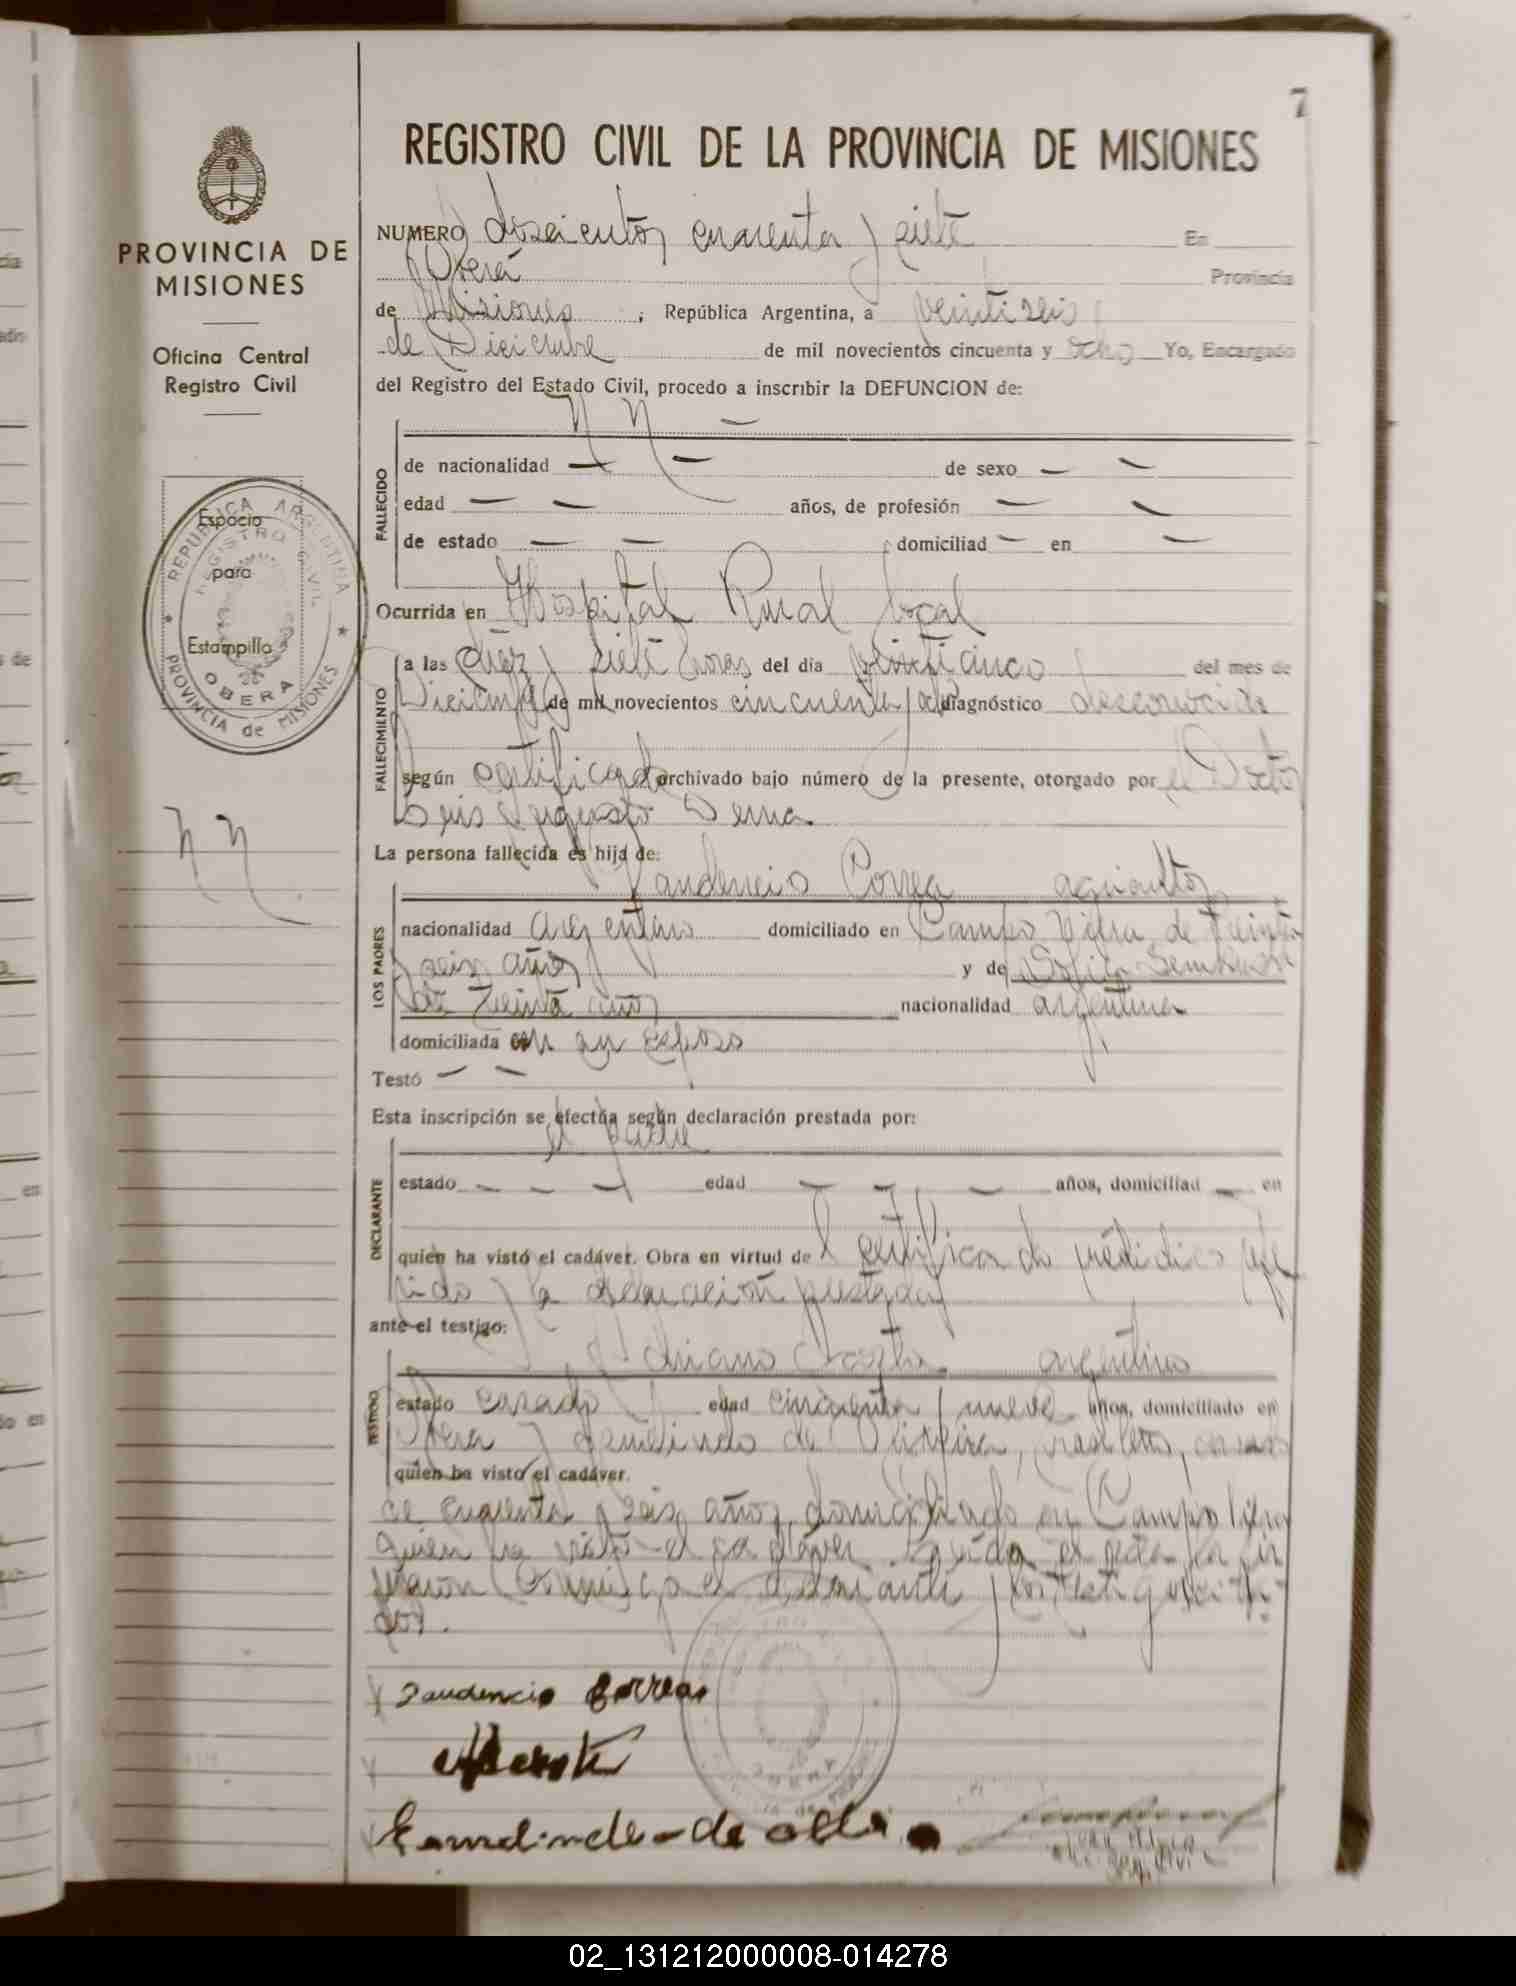 7
REGISTRO CIVIL DE LA PROVINCIA DE MISIONES
PROVINCIA DE
MISIONES
Oficina Central
Registro Civil
REPUBLICA ARGENTINA
REGISTRO CIVIL
Espacio
para
Estampilla
OBERA
PROVINCIA de MISIONES
N N
NUMERO doscientos cuarenta y siete En
Oberá Provincia
de Misiones ; República Argentina, a veintiseis
de Diciembre de mil novecientos cincuenta y ocho Yo, Encargado
del Registro del Estado Civil, procedo a inscribir la DEFUNCION de:
N N —
FALLECIDO
de nacionalidad — — de sexo — —
edad — — años, de profesión — —
de estado — — domiciliad — en —
Ocurrida en Hospital Rural local
FALLECIMIENTO
a las diez y siete horas del día veinticinco del mes de
Diciembre de mil novecientos cincuenta y ocho diagnóstico desconocido
según certificado archivado bajo número de la presente, otorgado por el Doctor
Luis Augusto
La persona fallecida es hija de:
Correa agricultor
LOS PADRES
nacionalidad argentino domiciliado en Campo Viera de treinta
y seis años y de Sofia
de treinta años nacionalidad argentina
domiciliada con su esposo
Testó — —
Esta inscripción se efectúa según declaración prestada por:
el padre
DECLARANTE
estado — — — edad — — — años, domiciliad — en
quien ha visto el cadáver. Obra en virtud del certificado médico
y la declaración prestada
ante el testigo:
argentino
TESTIGO
estado casado edad cincuenta y nueve años, domiciliado en
Oberá y de Oliveira, brasilero, casado
quien ha visto el cadáver.
de cuarenta y seis años, domiciliado en Campo Viera
quien ha visto el cadáver. Leída el acta la
firman conmigo el declarante y los testigos
Correa
de
02_131212000008-014278